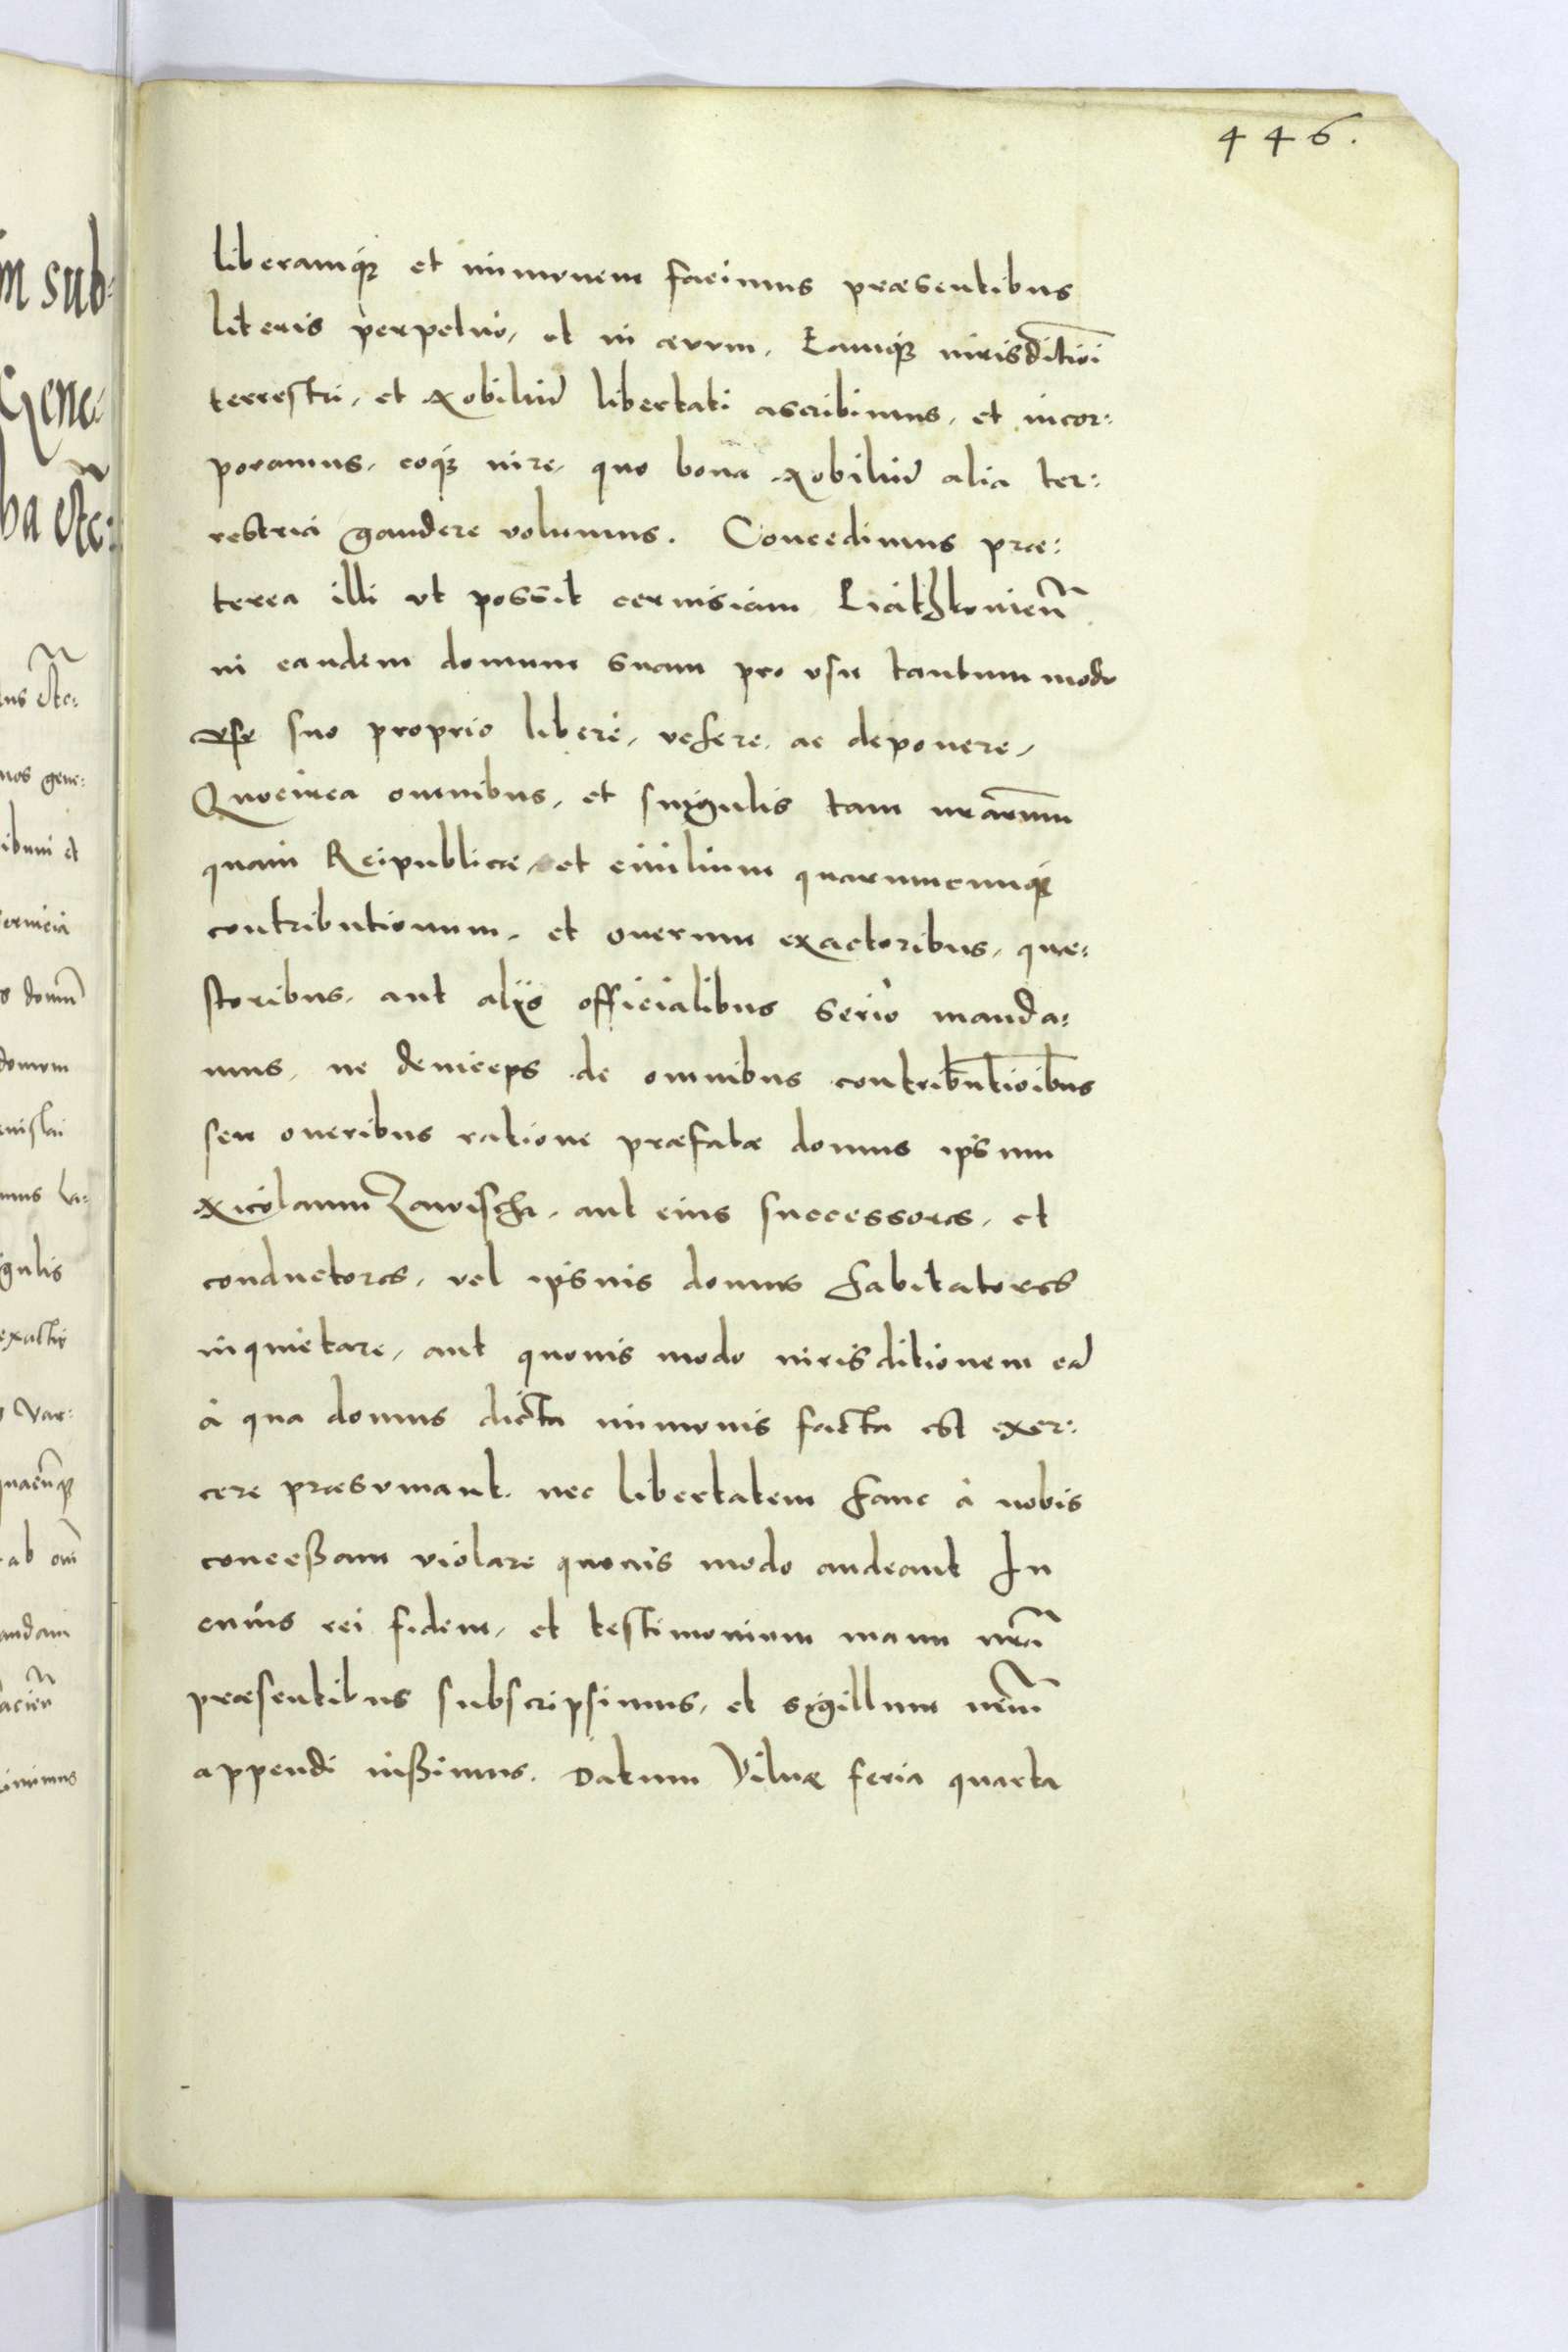 446.
liberamq₃ et immunem facimus præsentibus
literis perpetuò, et in æuum. Eamq₃ iurisditioi
terrestri, et Nobiliũ libertati ascribimus, et incor:
poramus, eoq₃ iure, quo bona Nobiliũ alia ter:
restria gaudere volumus. Concedimus præ:
terea illi vt possit ceruisiam Piathkouieñ
in eandem domum suam pro vsu tantummodo
suo proprio liberè, vehere, ac deponere,
Quocirca omnibus, et singulis tam nr̃arum
quàm Reipublicæ, et ciuilium quarumcunq₃
contributionum, et onerum exactoribus, quæ:
storibus, aut alijs officialibus seriò manda:
mus, ne deinceps de omnibus contributioibus
seu oneribus ratione præfatæ domus ipsum
Nicolaum Zawischa, aut eius successores, et
conductores, vel ipsius domus habitatores
inquietare, aut quouis modo iurisditionem eã
à qua domus dicta immunis facta est exer:
cere præsumant, nec libertatem hanc à nobis
conceßam violare quouis modo audeant In
cuius rei fidem, et testimonium manu nr̃a
præsentibus subscripsimus, et sigillum nr̃m
appendi iußimus. Datum Vilnæ feria quarta
m sub:
Gene:
ba etc̃:
tus etc̃:
nos gene:
ibuni et
o domũ
domum
nislai
mus Vi:
gulis
exactis
Var:
ab om̃